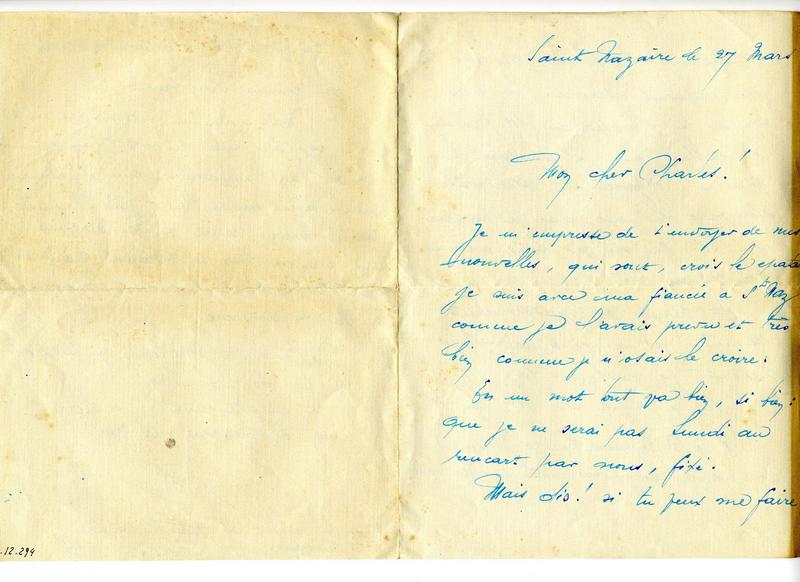 Saint Nazaire le 27 Mars
Mon cher Charles!
Je m'empresse de t'envoyer de mes
nouvelles, qui sont, crois le
je suis avec ma fiancée a St Naz
comme je l'avais prevu et très
bien comme je n'osais le croire.
En un mot tout va bien, si bien
que je ne serai pas Lundi au
rencart par nous, fixé.
Mais dis! si tu peux me faire
.12.294